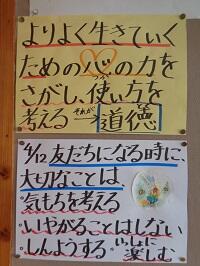 よりよく生きていく
ための心の力を
さがし、使い方を
考える それが→道徳
4/12 友だちになる時に、
大切なことは
・気もちを考える
・いやがることはしない
・しんようする ・いっしょに楽しむ